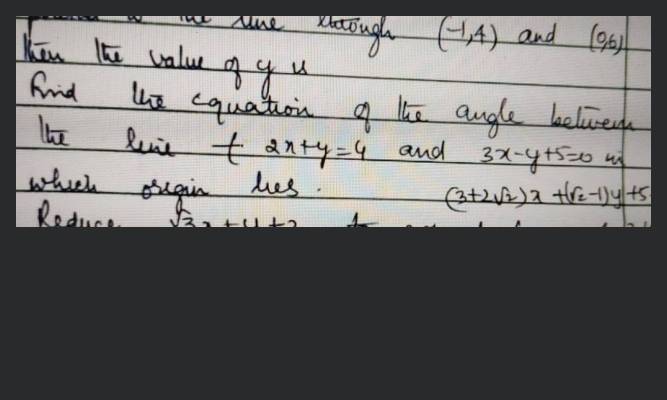 the line through (-1,4) and (0,6)
then the value of y is
find the equation of the angle between
the line f 2x+y=4 and 3x-y+5=0 in
which origin lies. (3+2√2)x+(√2-1)y+5
Reduce √3x+y+2